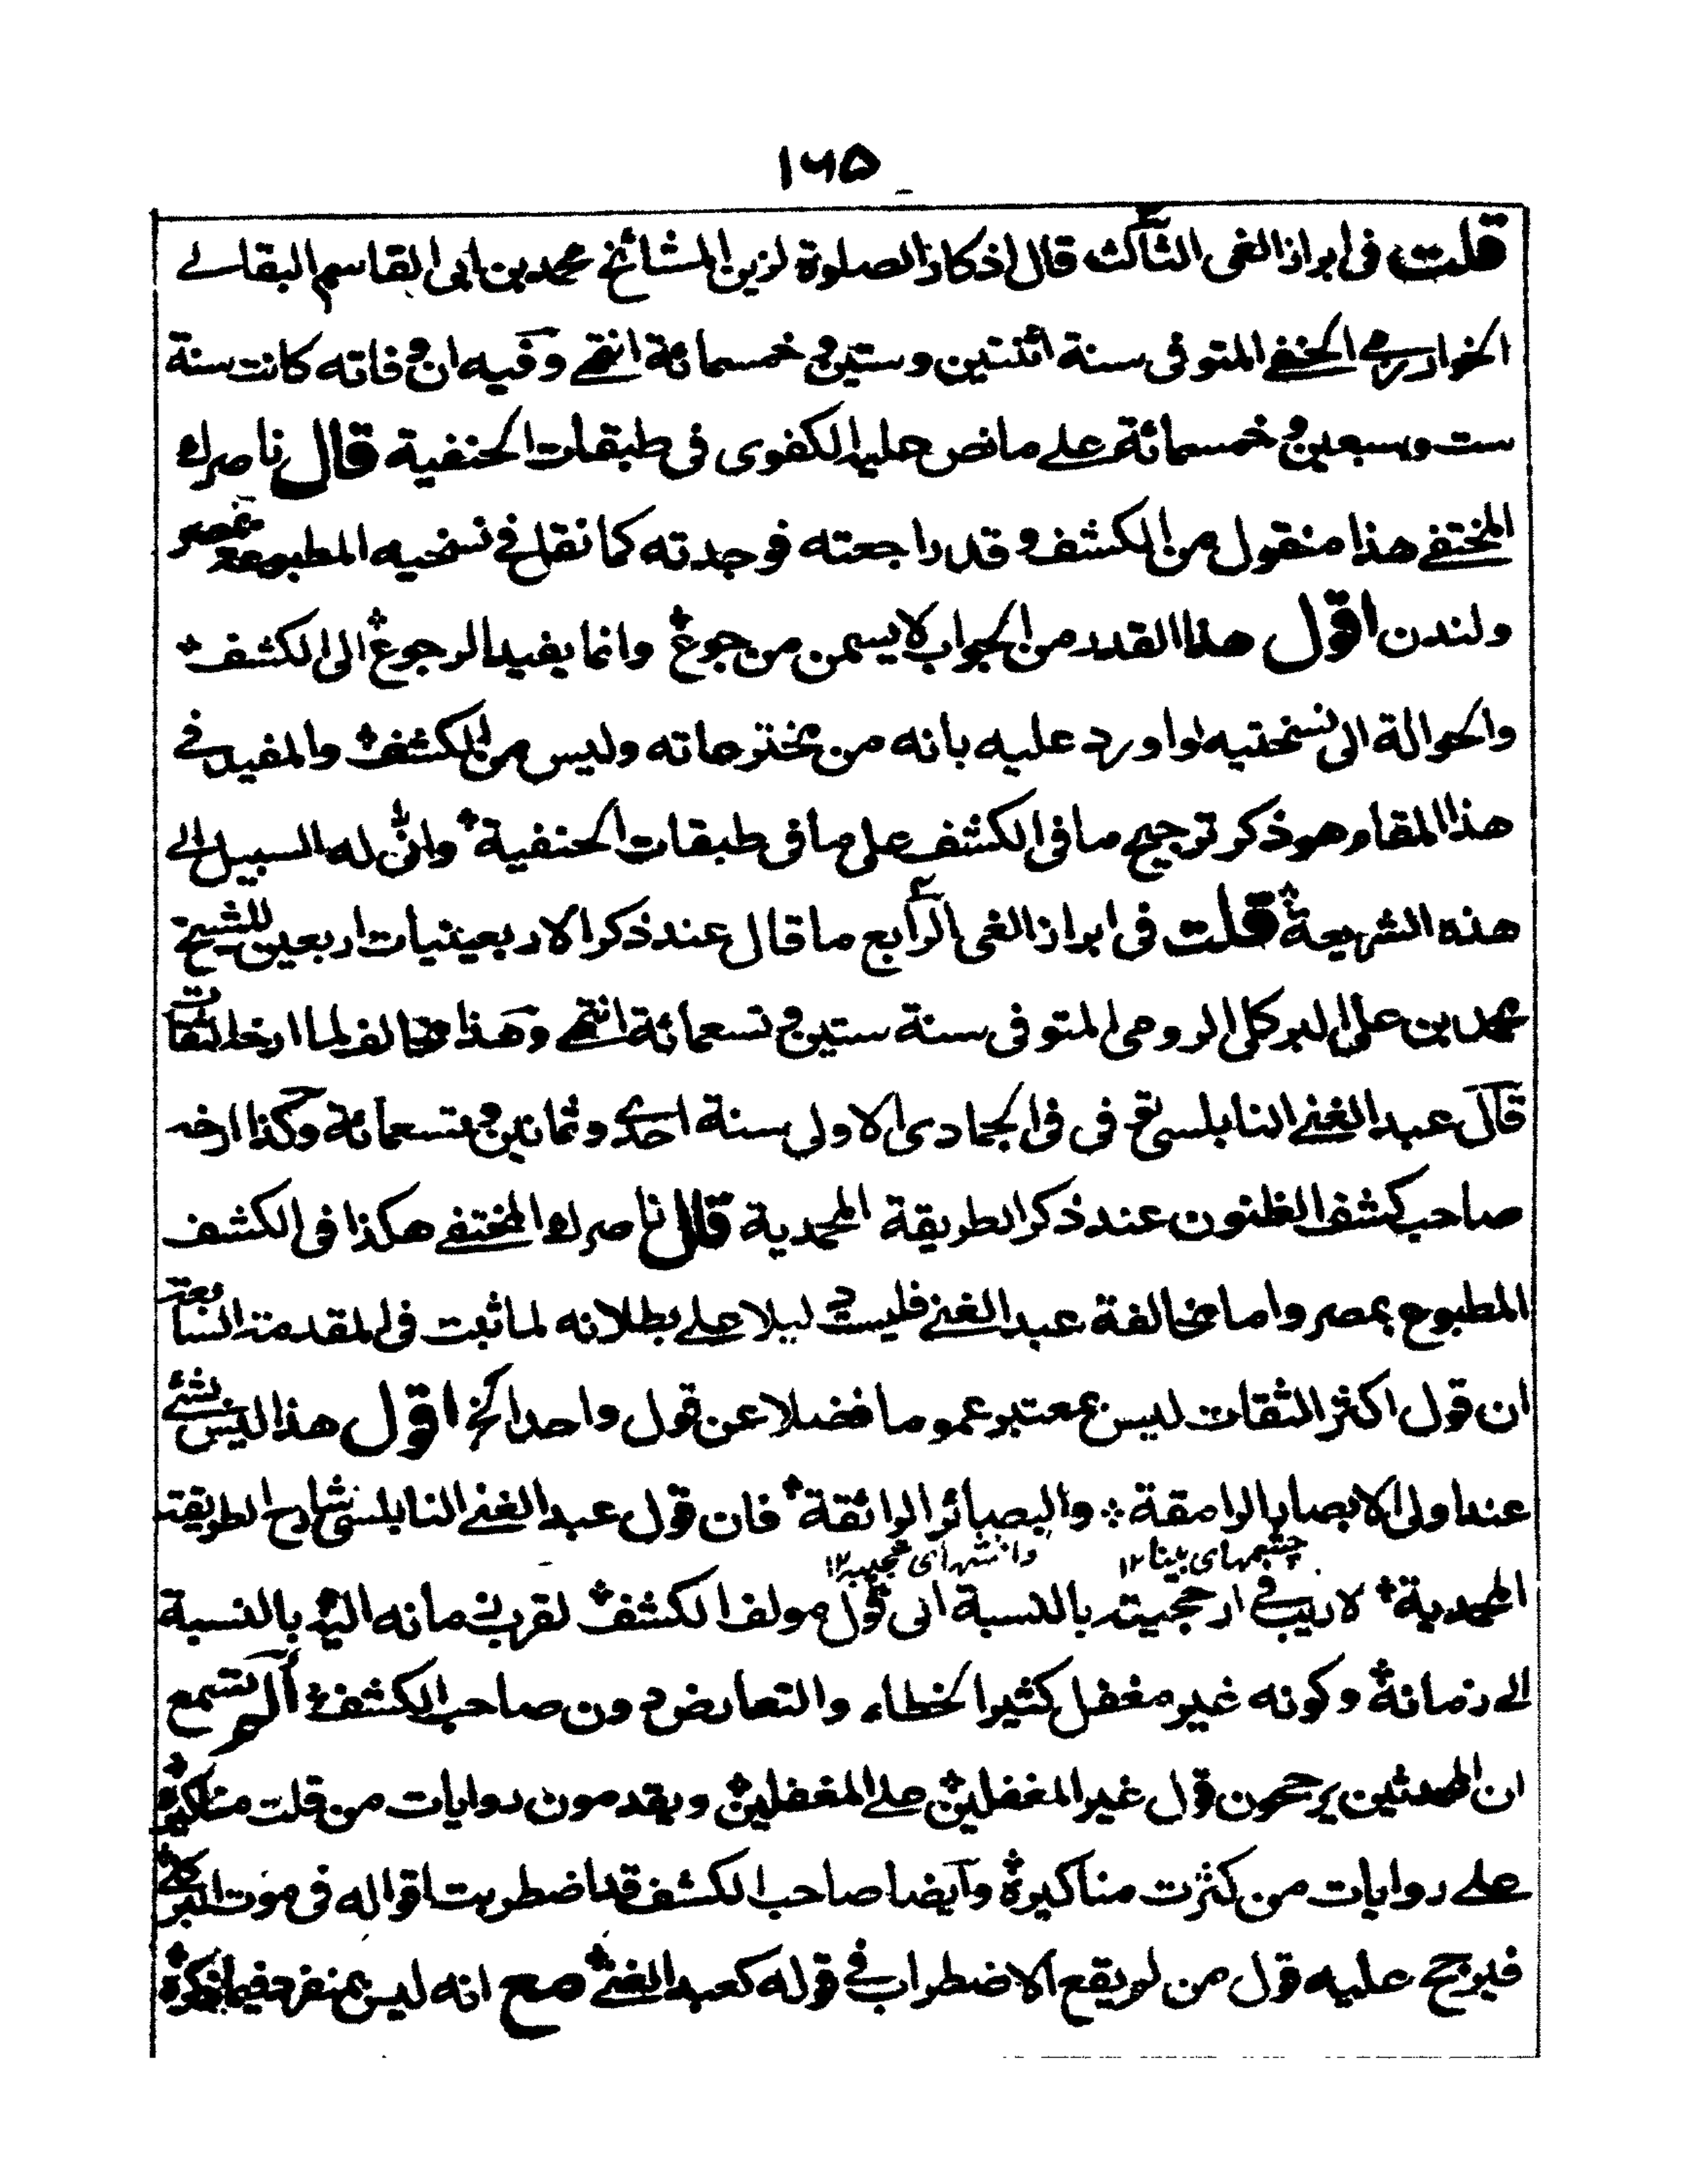 ١٦٥
قلت فی ابراز الغی الثالث قال اذکار الصلوة لزین المشائخ محمد بن ابی القاسم البقالے
الخوارزمے الحنفے المتوفی سنة اثنتین وستین وخمسمائة انتهے وفیه ان وفاته کانت سنة
ست وسبعین وخمسمائة علے مانص علیه الکفوی فی طبقات الحنفیة قال ناصرك
المختفے هذا منقول من الکشف وقد راجعته فوجدته کما نقل فے نسختیه المطبوعة بمصر
ولندن اقول هذا القدر من الجواب لا یسمن من جوع وانما یفید الرجوع الی الکشف
والحوالة الی نسختیه لو اورد علیه بانه من مخترعاته ولیس من الکشف والمفید فے
هذا المقام هو ذکر ترجیح ما فی الکشف علی ما فی طبقات الحنفیة وانّٰی له السبیل الے
هذه الشریعة قلت فی ابراز الغی الرابع ما قال عند ذکر الاربعینیات اربعین للشیخ
محمد بن علی البرکلی الرومی المتوفی سنة ستین وتسعمائة انتهے وهذا مخالف لما ارخه الثقات
قال عبد الغنے النابلسی توفی فی الجمادی الاولی سنة احدے وثمانین وتسعمائة وکذا ارخه
صاحب کشف الظنون عند ذکر الطریقة المحمدیة قال ناصرك المختفے هکذا فی الکشف
المطبوع بمصر واما مخالفة عبد الغنے فلیست دلیلا علے بطلانه لما ثبت فی المقدمة السابعة
ان قول اکثر الثقات لیس بمعتبر عموما فضلا عن قول واحد الخ اقول هذا لیس بشئے
عند اولی الابصار الرامقة والبصائر الرائقة فان قول عبد الغنے النابلسی شارح الطریقة
چشمهای بینا ١٢ دانشهای عجیبه ١٢
المحمدیة لا ریب فے ارجحیته بالنسبة الی قول مولف الکشف لقرب زمانه الیه بالنسبة
الے زمانه وکونه غیر مغفل کثیر الخطاء والتعارض دون صاحب الکشف ألم تسمع
ان المحدثین یرجحون قول غیر المغفلین علے المغفلین ویقدمون روایات من قلت مناکیره
علے روایات من کثرت مناکیره وایضا صاحب الکشف قد اضطربت اقواله فی موت البرکلے
فیرجح علیه قول من لم یقع الاضطراب فے قوله کعبد الغنے مع انه لیس بمنفرد فیما ذکره